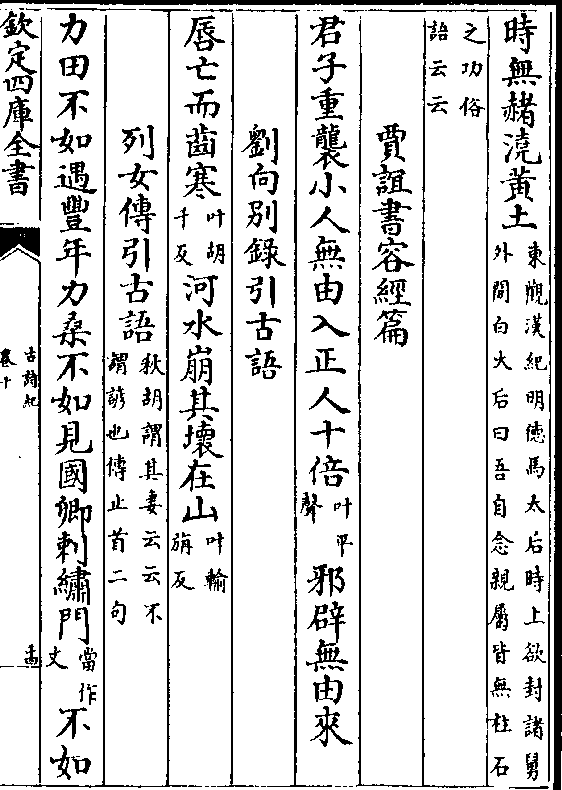 時無赭澆黃土
東觀漢紀明德馬太后時上欲封諸舅
外間白太后曰吾自念親屬皆無柱石
之功俗
語云云
賈誼書容經篇
君子重襲小人無由入正人十倍
叶平
聲
邪辟無由來
劉向别錄引古語
唇亡而齒寒
叶胡
千反
河水崩其壞在山
叶輸
旃反
列女傳引古語
秋胡謂其妻云云不
謂諺也傳止首二句
力田不如遇豐年力桑不如見國卿刺繡門
當作
文
不如
欽定四庫全書
古詩紀
卷十